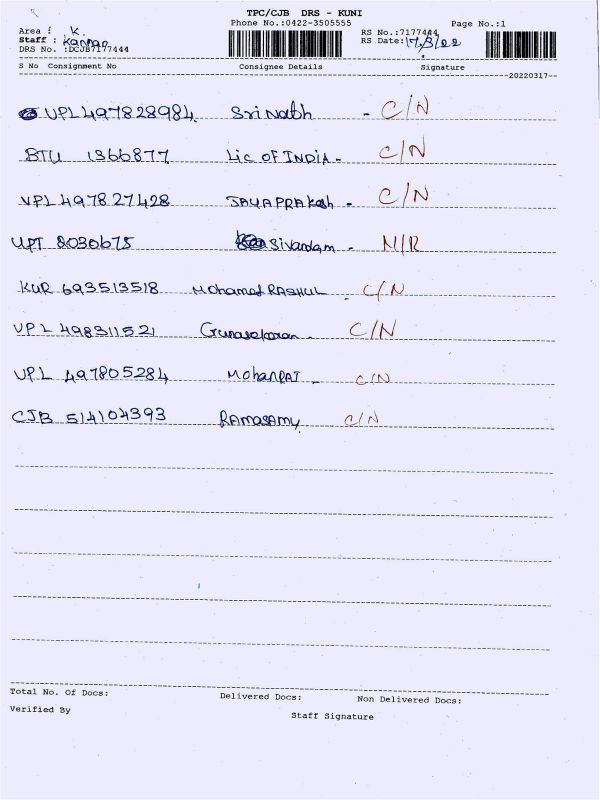 TPC/CJB DRS - KUNI
Phone No.:0422-3505555 Page No.:1
Area : K.
Staff : Kannan RS No.:7177444
DRS No. :DCJB7177444 RS Date: 17/3/22
S No Consignment No Consignee Details Signature
20220317
VPL497828984 Srinath - C/N
BTU 1366877 Lic OF INDIA - C/N
VPL497827428 JAYAPRAKash - C/N
UPT 8030675 Sivandam - N/R
KUR 693513518 Mohamed RASHUL C/N
VPL 498311521 Gunasekaran - C/N
VPL 497805284 MOHANRAJ - C/N
CJB 514104393 RAMASAMY C/N
Total No. Of Docs: Delivered Docs: Non Delivered Docs:
Verified By Staff Signature